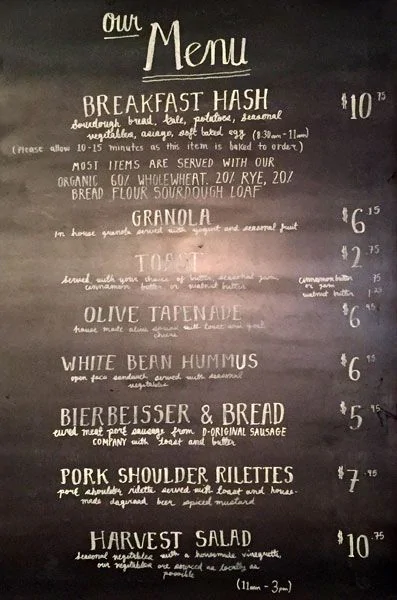 our
Menu
BREAKFAST HASH $10.75
Sourdough bread, kale, potatoes, seasonal
vegetables, asiago, soft baked egg (8:30am-11am)
(Please allow 10-15 minutes as this item is baked to order)
MOST ITEMS ARE SERVED WITH OUR
ORGANIC 60% WHOLEWHEAT, 20% RYE, 20%
BREAD FLOUR SOURDOUGH LOAF
GRANOLA $6
In house granola served with yogurt and seasonal fruit
TOAST $2.75
Served with your choice of butter, seasonal jam,
cinnamon butter or walnut butter
cinnamon butter 75
or jam
walnut butter
OLIVE TAPENADE $6
house made olive spread with toast and goat
cheese
WHITE BEAN HUMMUS $6
open face sandwich served with seasonal
vegetables
BIERBEISSER & BREAD $5
cured meat pork sausage from D-ORIGINAL SAUSAGE
COMPANY with toast and butter
PORK SHOULDER RILETTES $7.95
pork shoulder rilette served with toast and house-
made dageraad beer spiced mustard
HARVEST SALAD $10.75
Seasonal vegetables with a homemade vinegrette,
our vegetables are sourced as locally as
possible
(11am - 3pm)